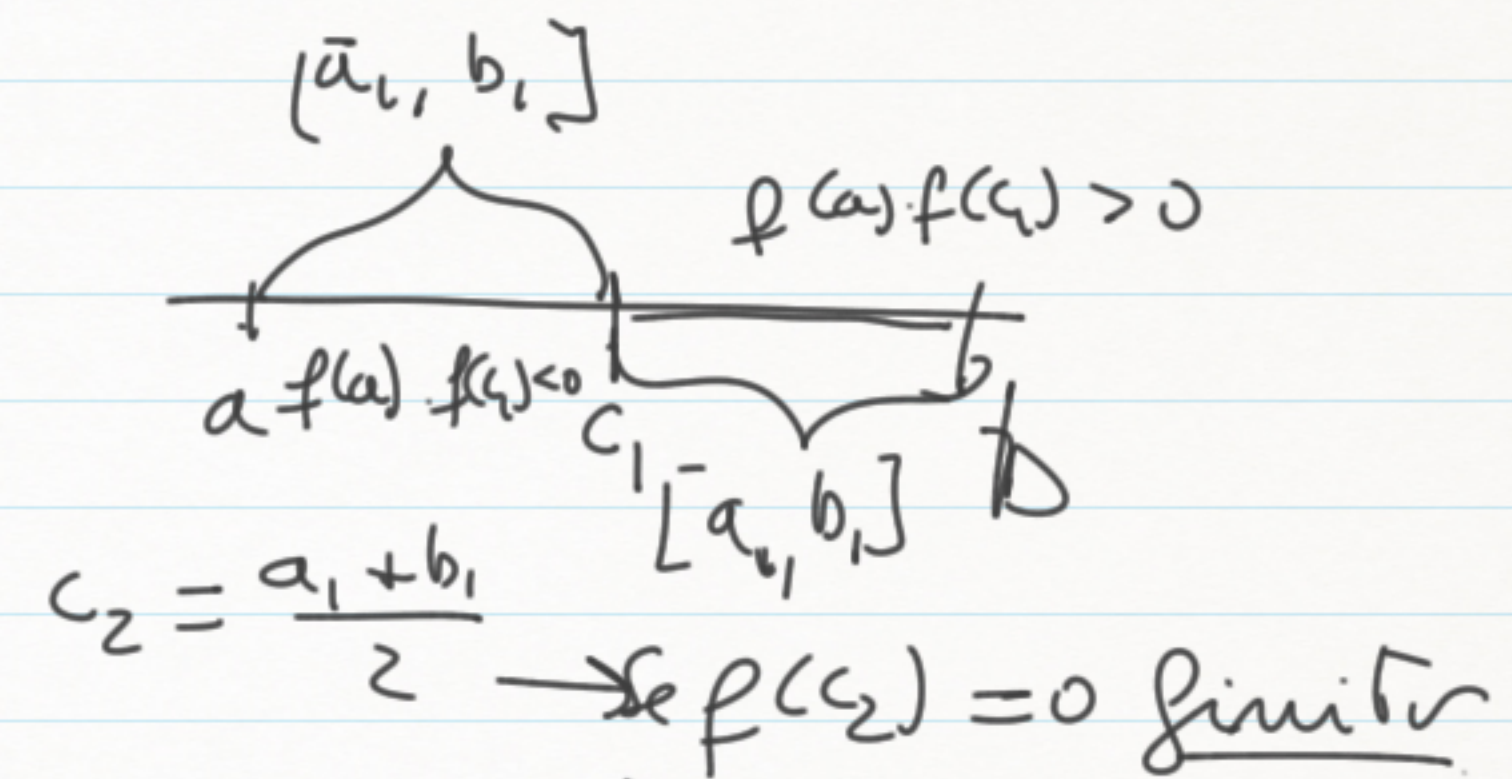 [a₁, b₁]
f(a)·f(c₁) > 0
a f(a)·f(c₁)<0 c₁ b
[a₁, b₁]
c₂ = (a₁ + b₁)/2 → Se f(c₂) = 0 finito